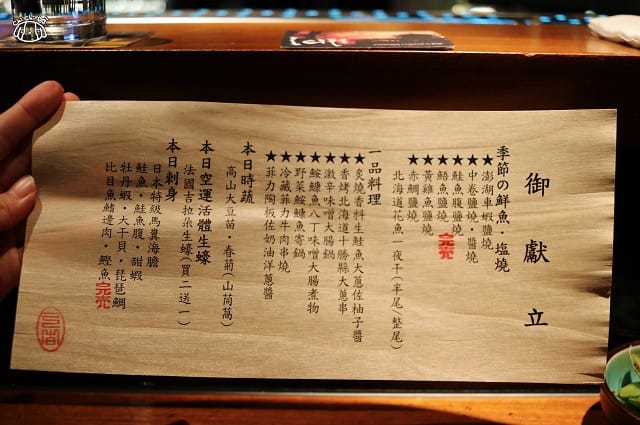 御獻立
季節の鮮魚・塩燒
★澎湖車蝦鹽燒
★中卷鹽燒・醬燒
★鮭魚腹鹽燒
★鯧魚鹽燒 完売
★黃雞魚鹽燒
★赤鯛鹽燒
北海道花魚一夜干(半尾/整尾)
一品料理
★炙燒香料生鮭魚大蔥佐柚子醬
★香烤北海道十勝縣大蔥串
★激辛味噌大腸鍋
★鮟鱇魚八丁味噌大腸煮物
★野菜鮟鱇魚寄鍋
★冷藏菲力牛肉串燒
★菲力陶板佐奶油洋蔥醬
本日時蔬
高山大豆苗・春菊(山茼萵)
本日空運活體生蠔
法國吉拉朵生蠔(買二送一)
本日刺身
日本特級馬糞海膽
鮭魚・鮭魚腹・甜蝦
牡丹蝦・大干貝・琵琶鯛
比目魚鰭邊肉・鰹魚 完売